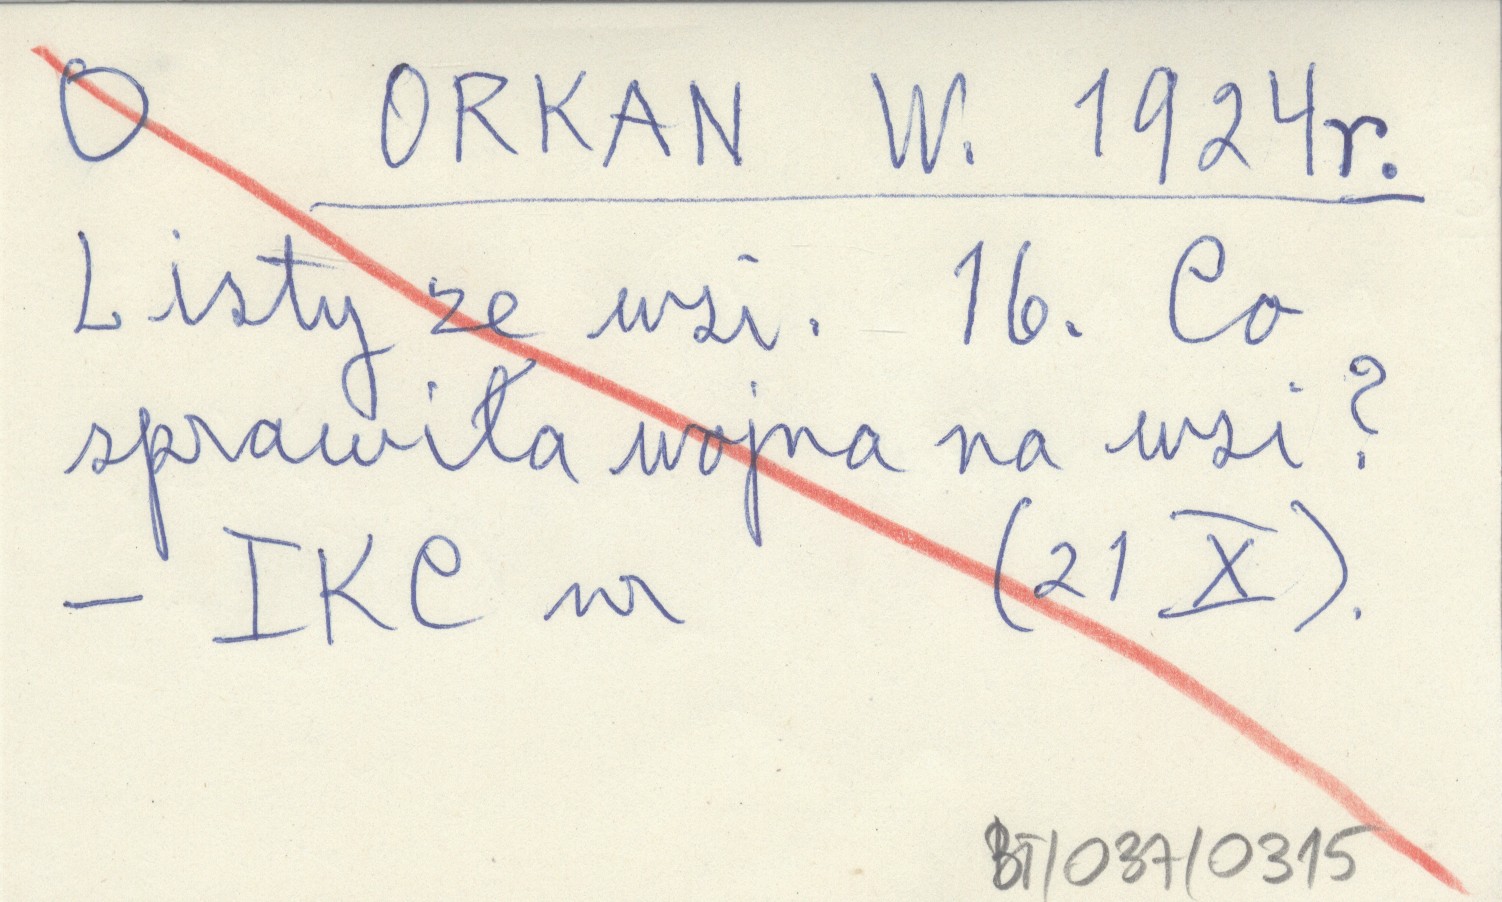 O ORKAN W. 1924r.
Listy ze wsi. 16. Co
sprawiła wojna na wsi?
- IKC nr (21 X).
BT/037/0315